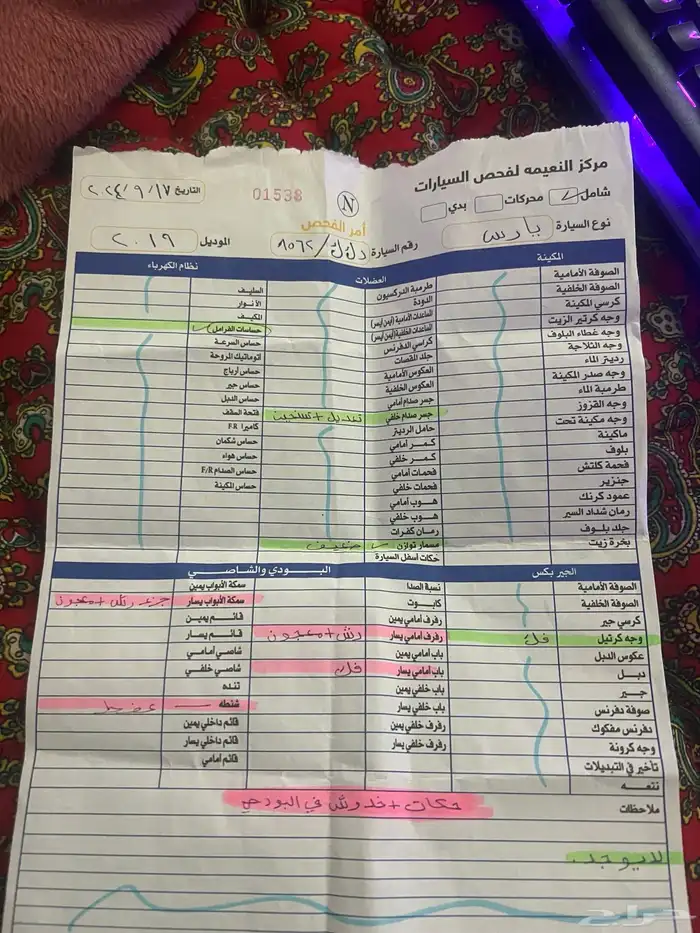 مركز النعيمه لفحص السيارات
شامل محركات بدي
01538
N
أمر الفحص
التاريخ ٢٠٢٤/٩/١٧
نوع السيارة يارس
رقم السيارة ٨٥٦٢
الموديل ٢٠١٩
المكينة
الصوفة الأمامية
الصوفة الخلفية
كرسي المكينة
وجه كرتير الزيت
وجه غطاء البلوف
وجه الثلاجة
رديتر الماء
وجه صدر المكينة
طرمبة الماء
وجه القزوز
وجه مكينة تحت
ماكينة
بلوف
فحمة كلتش
جنزير
عمود كرنك
رمان شداد السير
جلد بلوف
بخرة زيت
العضلات
طرمبة الدركسيون
الدودة
المساعدات الأمامية (أيمن/أيسر)
المساعدات الخلفية (أيمن/أيسر)
كراسي الدفرنس
جلد المقصات
العكوس الأمامية
العكوس الخلفية
جسر صدام أمامي
جسر صدام خلفي تعديل +
حامل الرديتر
كمر أمامي
كمر خلفي
فحمات أمامي
فحمات خلفي
هوب أمامي
هوب خلفي
رمان كفرات
مسمار توازن خفيف
حكات أسفل السيارة
نظام الكهرباء
السلف
الأنوار
المكيف
حساسات الفرامل
حساس السرعة
اتوماتيك المروحة
حساس أرباج
حساس جير
حساس الدبل
فتحة السقف
كاميرا F.R
حساس شكمان
حساس هواء
حساس الصدام F/R
حساس المكينة
الجير بكس
الصوفة الأمامية
الصوفة الخلفية
كرسي جير
وجه كرتيل فك
عكوس الدبل
دبل
جير
صوفة دفرنس
دفرنس مفكوك
وجه كرونة
تأخير في التبديلات
نتعه
البودي والشاصي
نسبة الصدا
كابوت
رفرف أمامي يمين
رفرف أمامي يسار رش + معجون
باب أمامي يمين
باب أمامي يسار فك
باب خلفي يمين
باب خلفي يسار
رفرف خلفي يمين
رفرف خلفي يسار
سمكة الأبواب يمين
سمكة الأبواب يسار رش + معجون
قائم يمين
قائم يسار
شاصي أمامي
شاصي خلفي
تنده
شنطه
قائم داخلي يمين
قائم داخلي يسار
قائم أمامي
ملاحظات
حكات + خدوش في البودي
لا يوجد
حراج